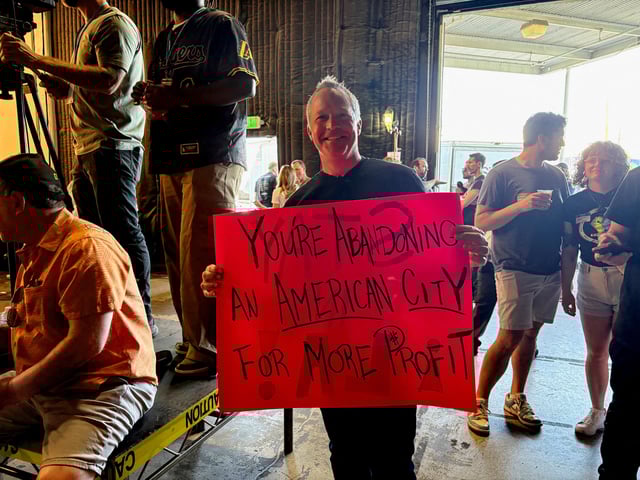 YOU'RE ABANDONING
AN AMERICAN CITY
FOR MORE PROFIT
CAUTION
CA